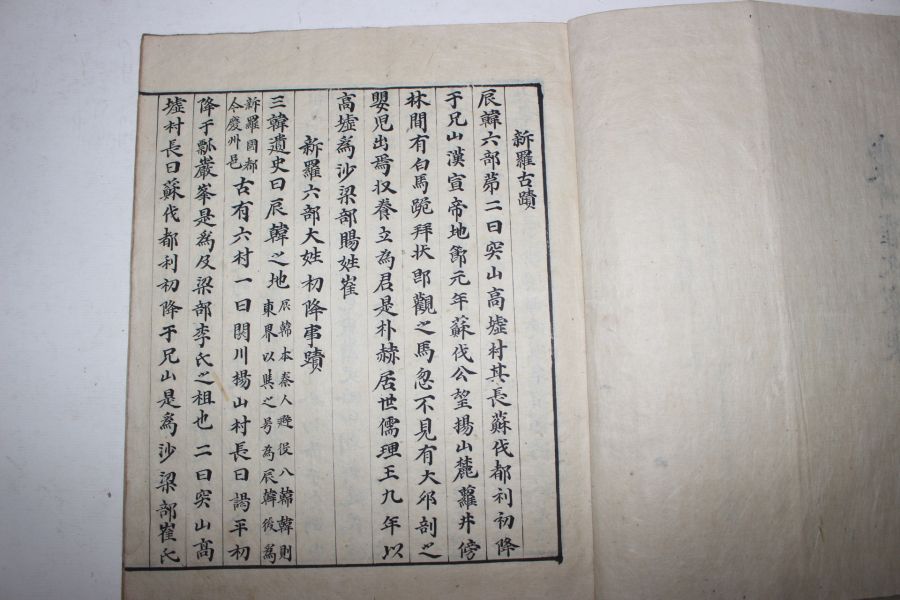 新羅古蹟
辰韓六部第二曰突山高墟村其長蘇伐都利初降
于兄山漢宣帝地節元年蘇伐公望揚山麓蘿井傍
林間有白馬跪拜状即觀之馬忽不見有大卵剖之
嬰児出焉収養立為君是朴赫居世儒理王九年以
高墟爲沙梁部賜姓崔
新羅六部大姓初降事蹟
三韓遺史曰辰韓之地辰韓本秦人避役入韓韓則
東界以與之号為辰韓後為
新羅国都
今慶州邑古有六村一曰閼川揚山村長曰謁平初
降于瓢巖峯是爲及梁部李氏之祖也二曰突山高
墟村長曰蘇伐都利初降于兄山是爲沙梁部崔氏